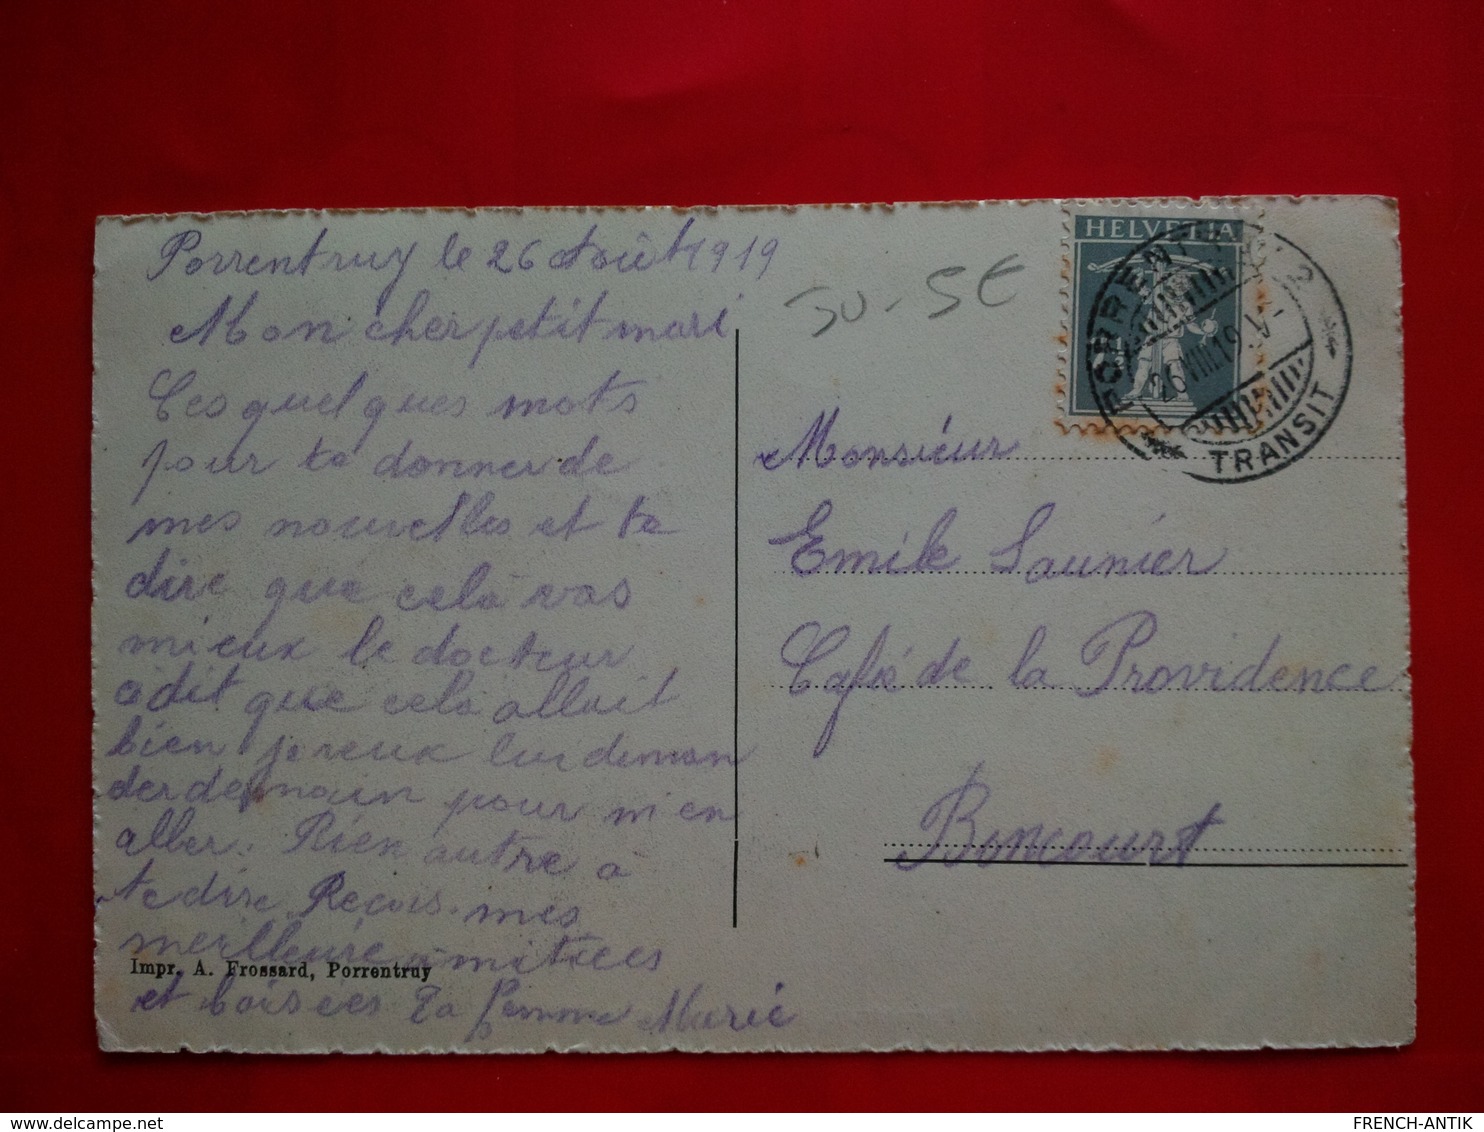 Porrentruy le 26 Août 1919
Mon cher petit mari
Ces quelques mots
pour te donner de
mes nouvelles et te
dire que celà vas
mieux le docteur
a dit que cela allait
bien je veux lui deman
der demain pour m'en
aller. Rien autre à
te dire Reçois mes
meilleure amitiées
et baisées Ta femme Marie
Impr. A. Frossard, Porrentruy
JU - 5€
HELVETIA
PORRENTRUY 2
26.VIII.19.
TRANSIT
Monsieur
Emile Saunier
Café de la Providence
Boncourt
FRENCH-ANTIK